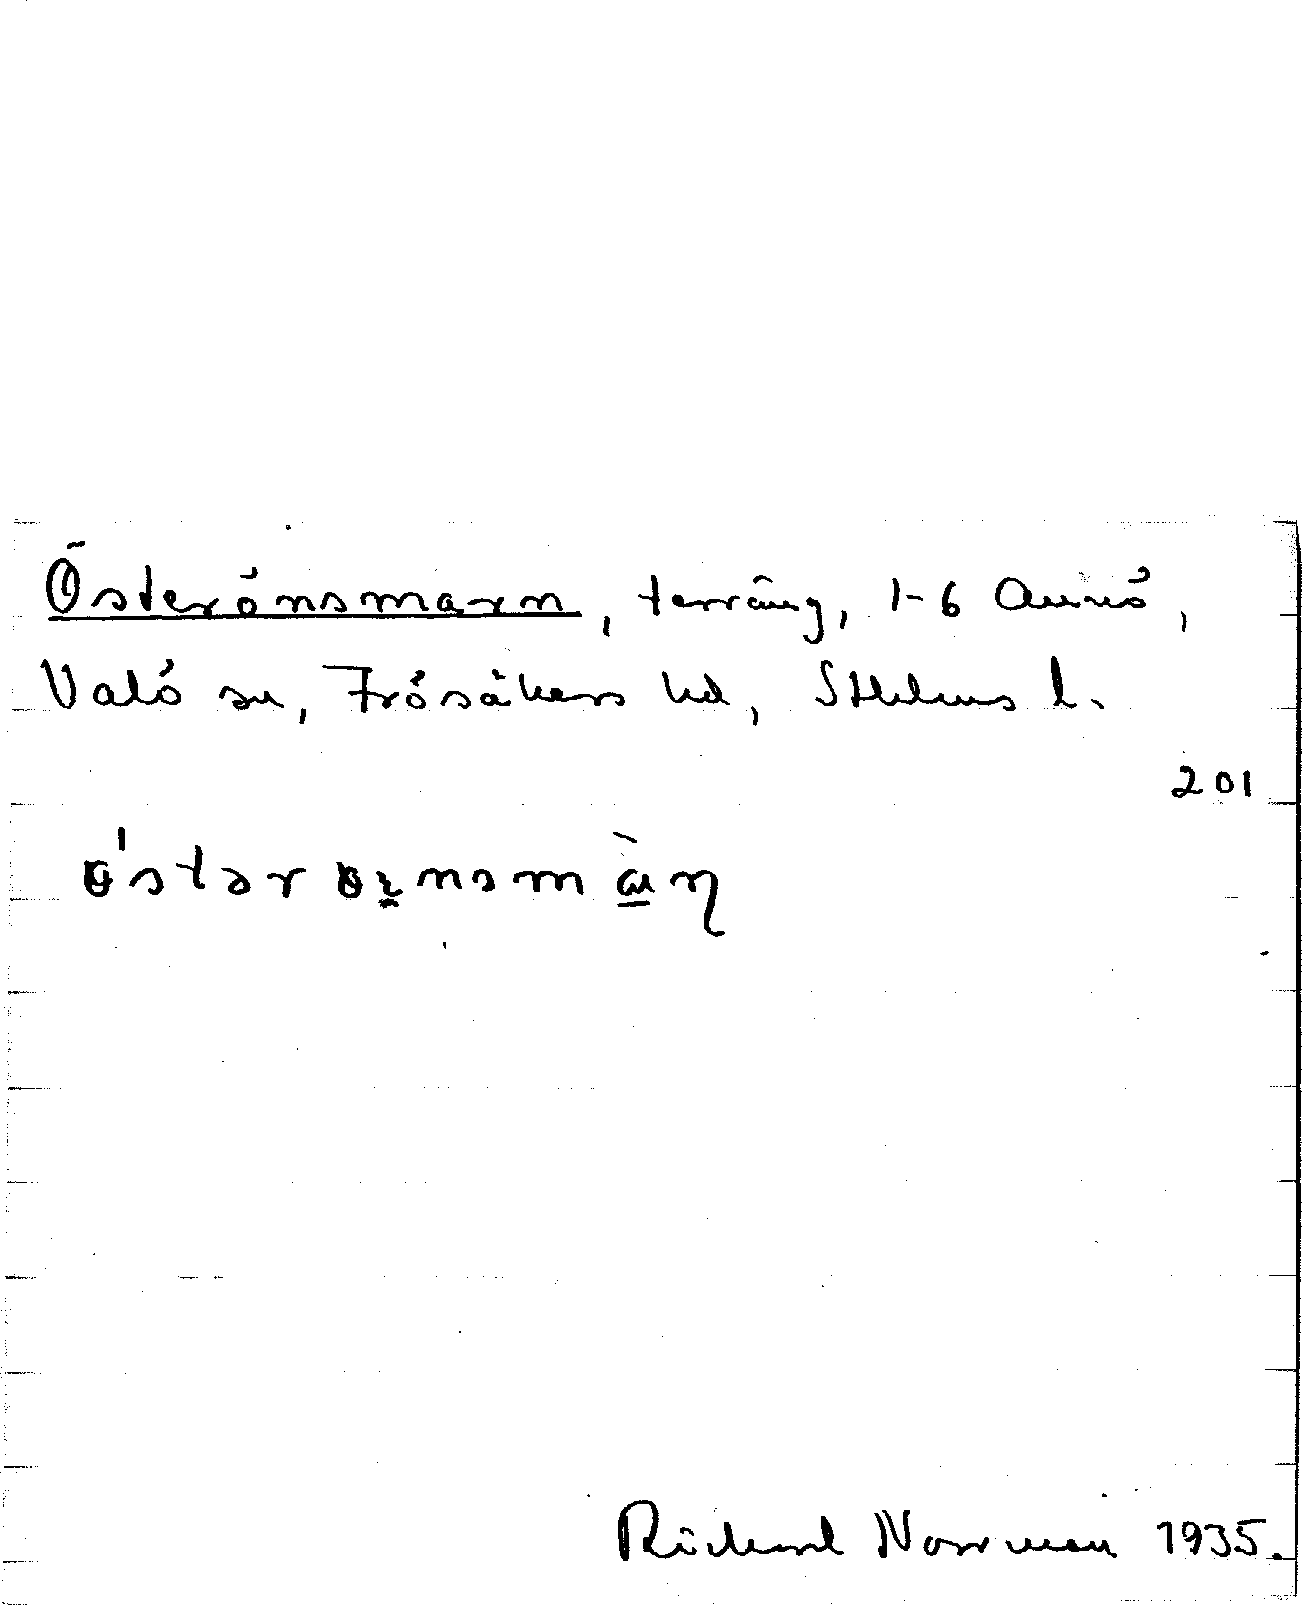 Österönsmarn, terräng, 1-6 Annö,
Valö sn, Frösåkers hd, Sthlms l.
201
Rickard Norrman 1935.